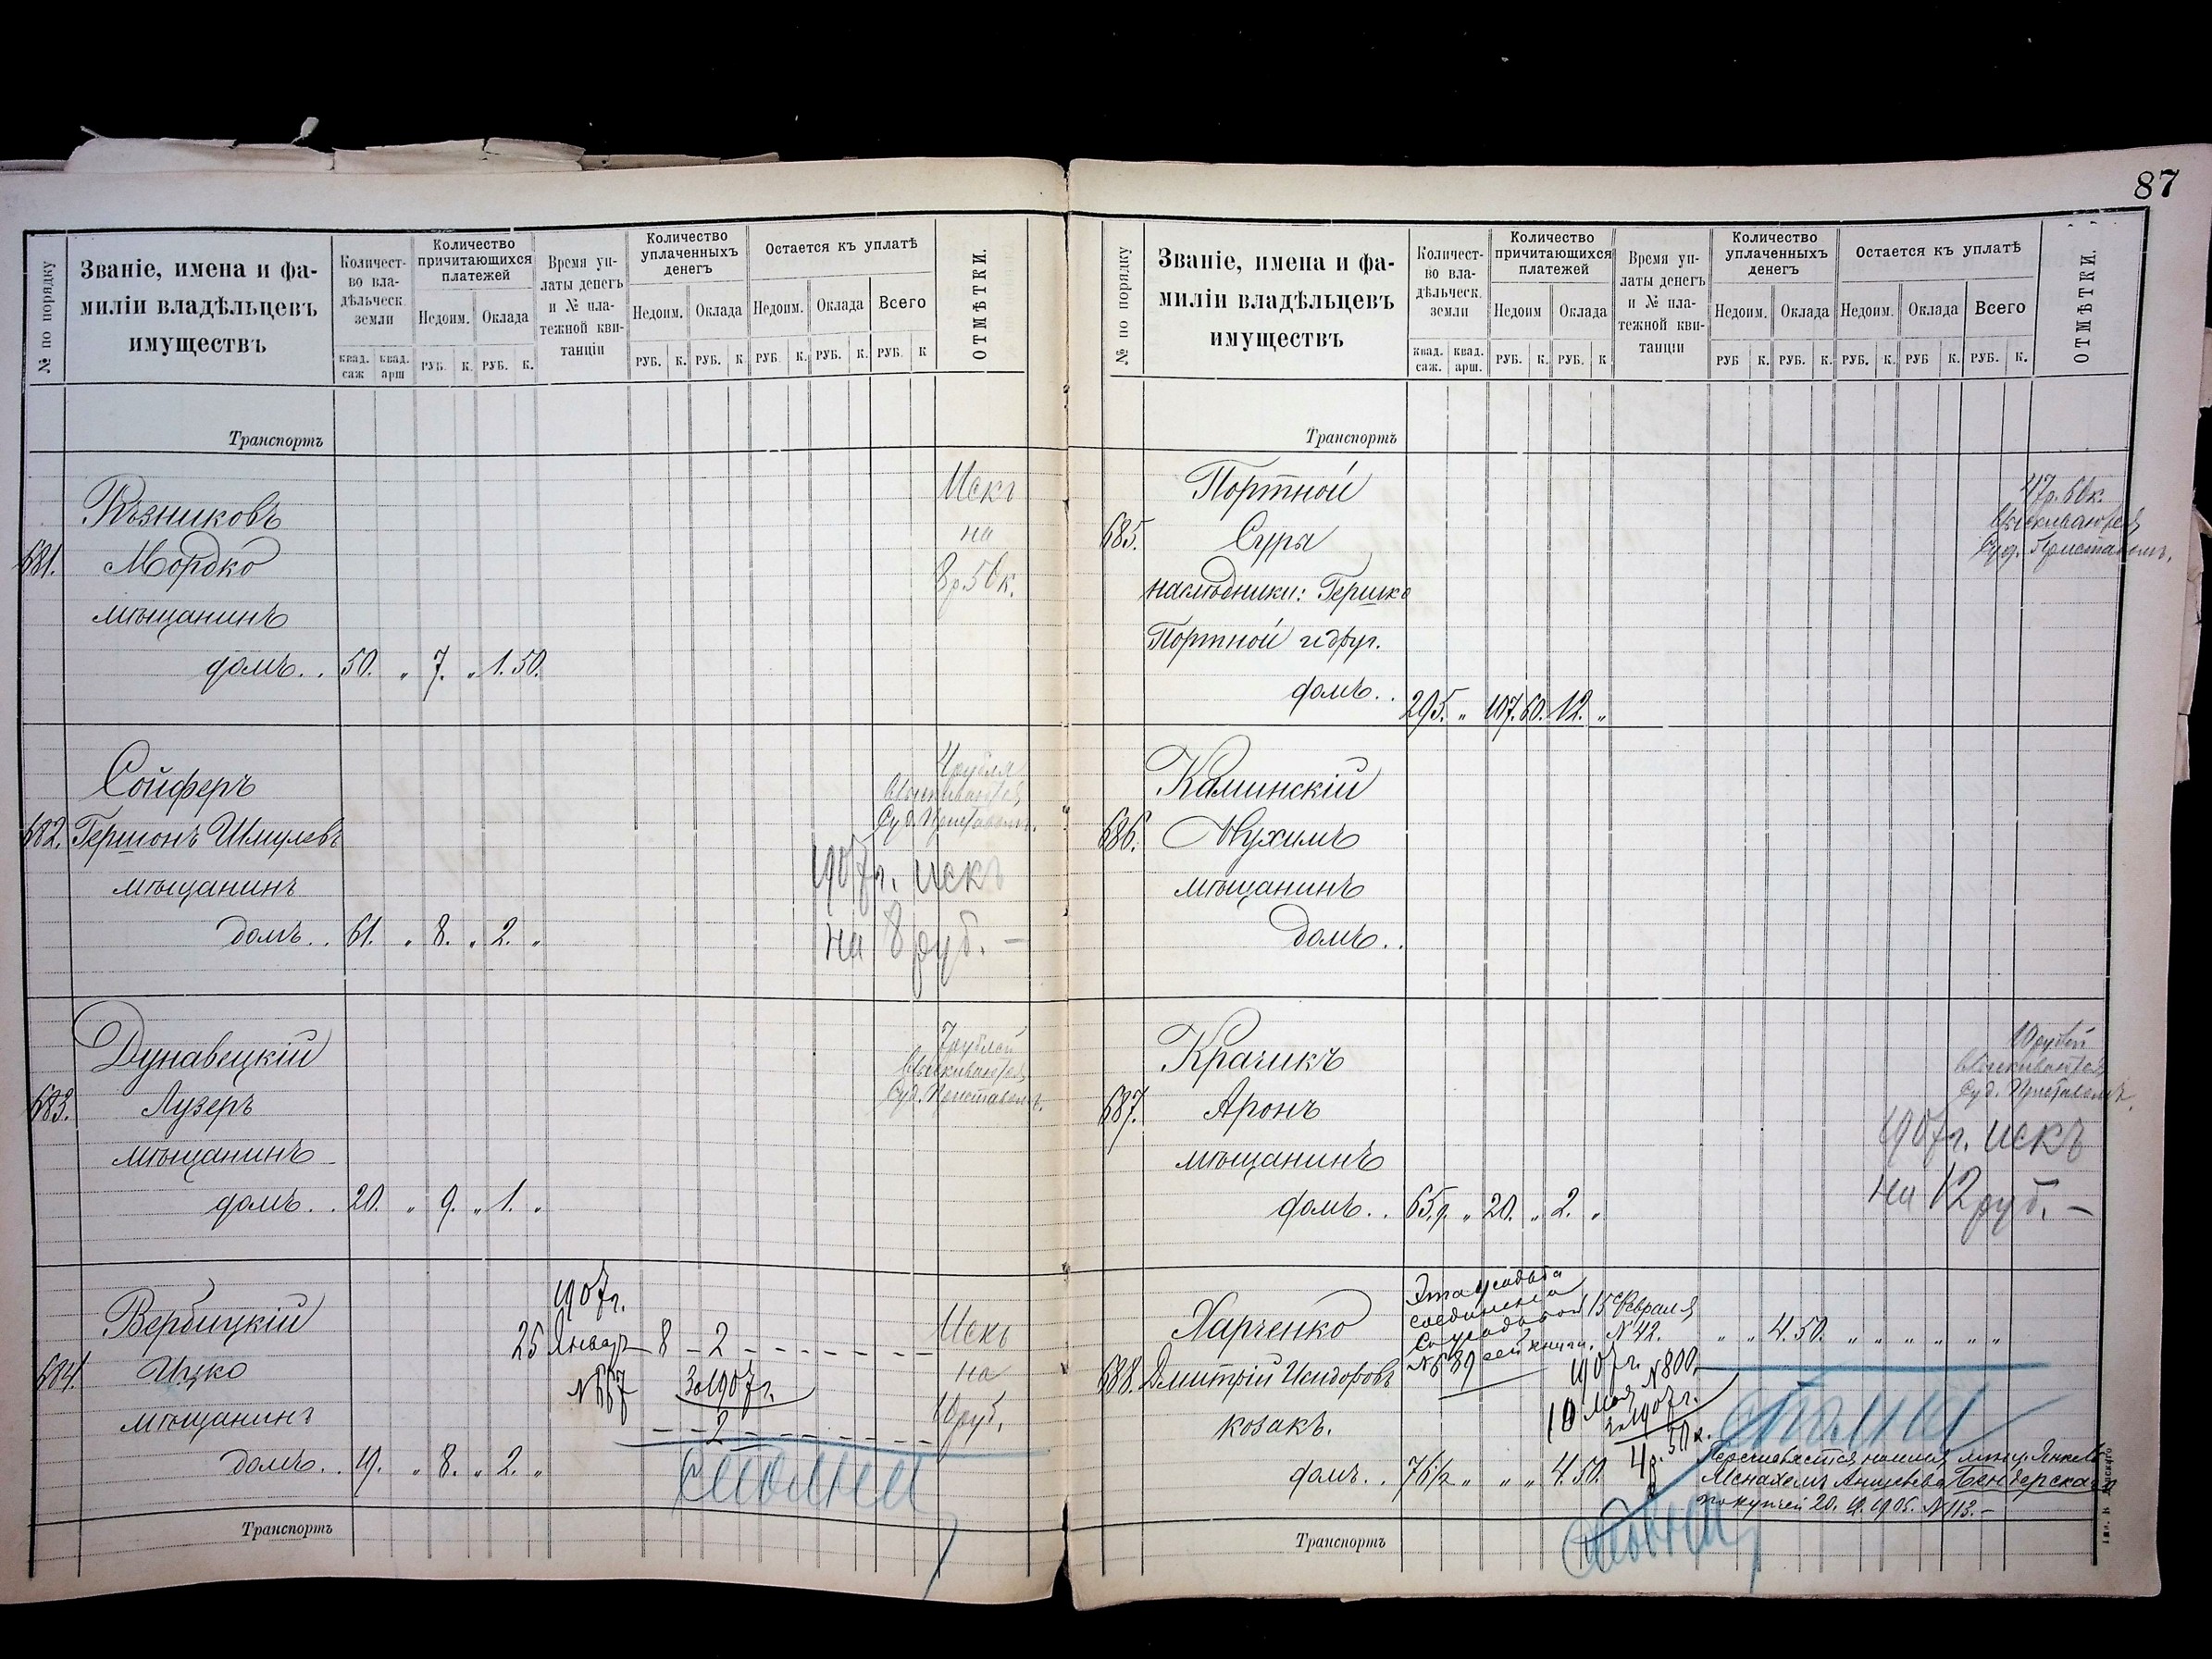 87
№ по порядку
Званіе, имена и фа-
миліи владѣльцевъ
имуществъ
Количест-
во вла-
дѣльческ.
земли
квад. саж. квад. арш.
Количество
причитающихся
платежей
Недоим. Оклада
РУБ. К. РУБ. К.
Время уп-
латы денегъ
и № пла-
тежной кви-
танціи
Количество
уплаченныхъ
денегъ
Недоим. Оклада
РУБ. К. РУБ. К.
Остается къ уплатѣ
Недоим. Оклада Всего
РУБ. К. РУБ. К. РУБ. К
ОТМѢТКИ.
Транспортъ
Рѣзниковъ
681. Мордко
мѣщанинъ
домъ.. 50. „ 7. „ 1. 50.
Искъ
на
8р. 50к.
Сойферъ
682. Гершонъ Шмулевъ
мѣщанинъ
домъ.. 61. „ 8. „ 2. „
4 рубля
взыскиваются
Суд. Приставомъ.
1907г. искъ
на 8 руб. —
Дунавецкій
683. Лузеръ
мѣщанинъ
домъ.. 20. „ 9. „ 1. „
7 рублей
взыскиваются
Суд. Приставомъ.
Вербицкій
684. Ицко
мѣщанинъ
домъ.. 19. „ 8. „ 2. „
1907г.
25 Январ 8 – 2
За 1907г.
2
Искъ
на
10 руб.
Транспортъ
№ по порядку
Званіе, имена и фа-
миліи владѣльцевъ
имуществъ
Количест-
во вла-
дѣльческ.
земли
квад. саж. квад. арш.
Количество
причитающихся
платежей
Недоим Оклада
РУБ. К. РУБ. К
Время уп-
латы денегъ
и № пла-
тежной кви-
танціи
Количество
уплаченныхъ
денегъ
Недоим. Оклада
РУБ К. РУБ. К.
Остается къ уплатѣ
Недоим. Оклада Всего
РУБ. К. РУБ К. РУБ. К.
ОТМѢТКИ.
Транспортъ
Портной
685. Сура
наслѣдники: Гершко
Портной и друг.
домъ.. 295. „ 107. 60. 12. „
47р. 60к.
взыскиваются
Суд. Приставомъ.
Каминскій
686. Нухимъ
мѣщанинъ
домъ..
Крачикъ
687. Аронъ
мѣщанинъ
домъ.. „ 20. „ 2. „
10 рублей
взыскиваются
Суд. Приставомъ.
1907г. искъ
на 12 руб. —
Харченко
688. Дмитрій Исидоровъ
козакъ.
домъ.. 76½ „ „ „ 4. 50.
Эта усадьба
соединена
съ усадьбой
сей книги.
15 Февраля
№ 42.
„ „ 4. 50. „ „ „ „ „ „
1907г.
10 Мая № 800.
за 1907г.
4р. 50к.
Бендерская
Транспортъ